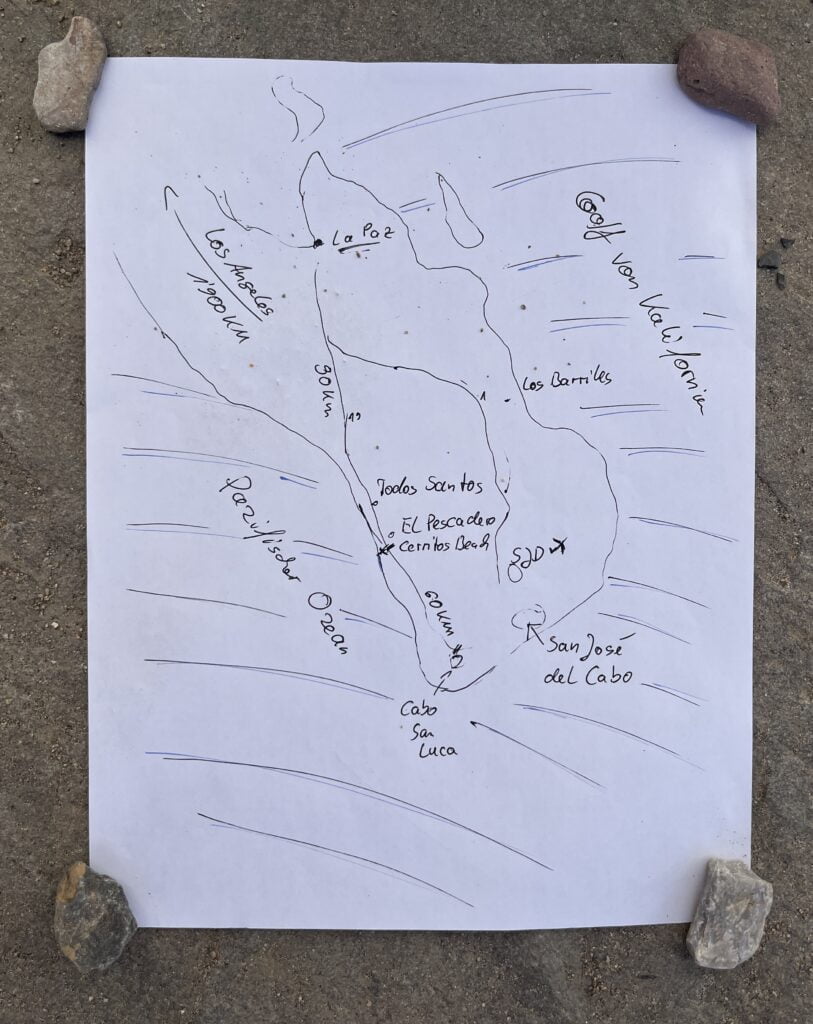 La Paz
Los Angeles
1'900 KM
Golf von Kalifornien
90 Km
Los Barriles
1
19
Todos Santos
EL Pescadero
Cerritos Beach
Pazifischer Ozean
SJD
60 Km
San José
del Cabo
Cabo
San
Luca